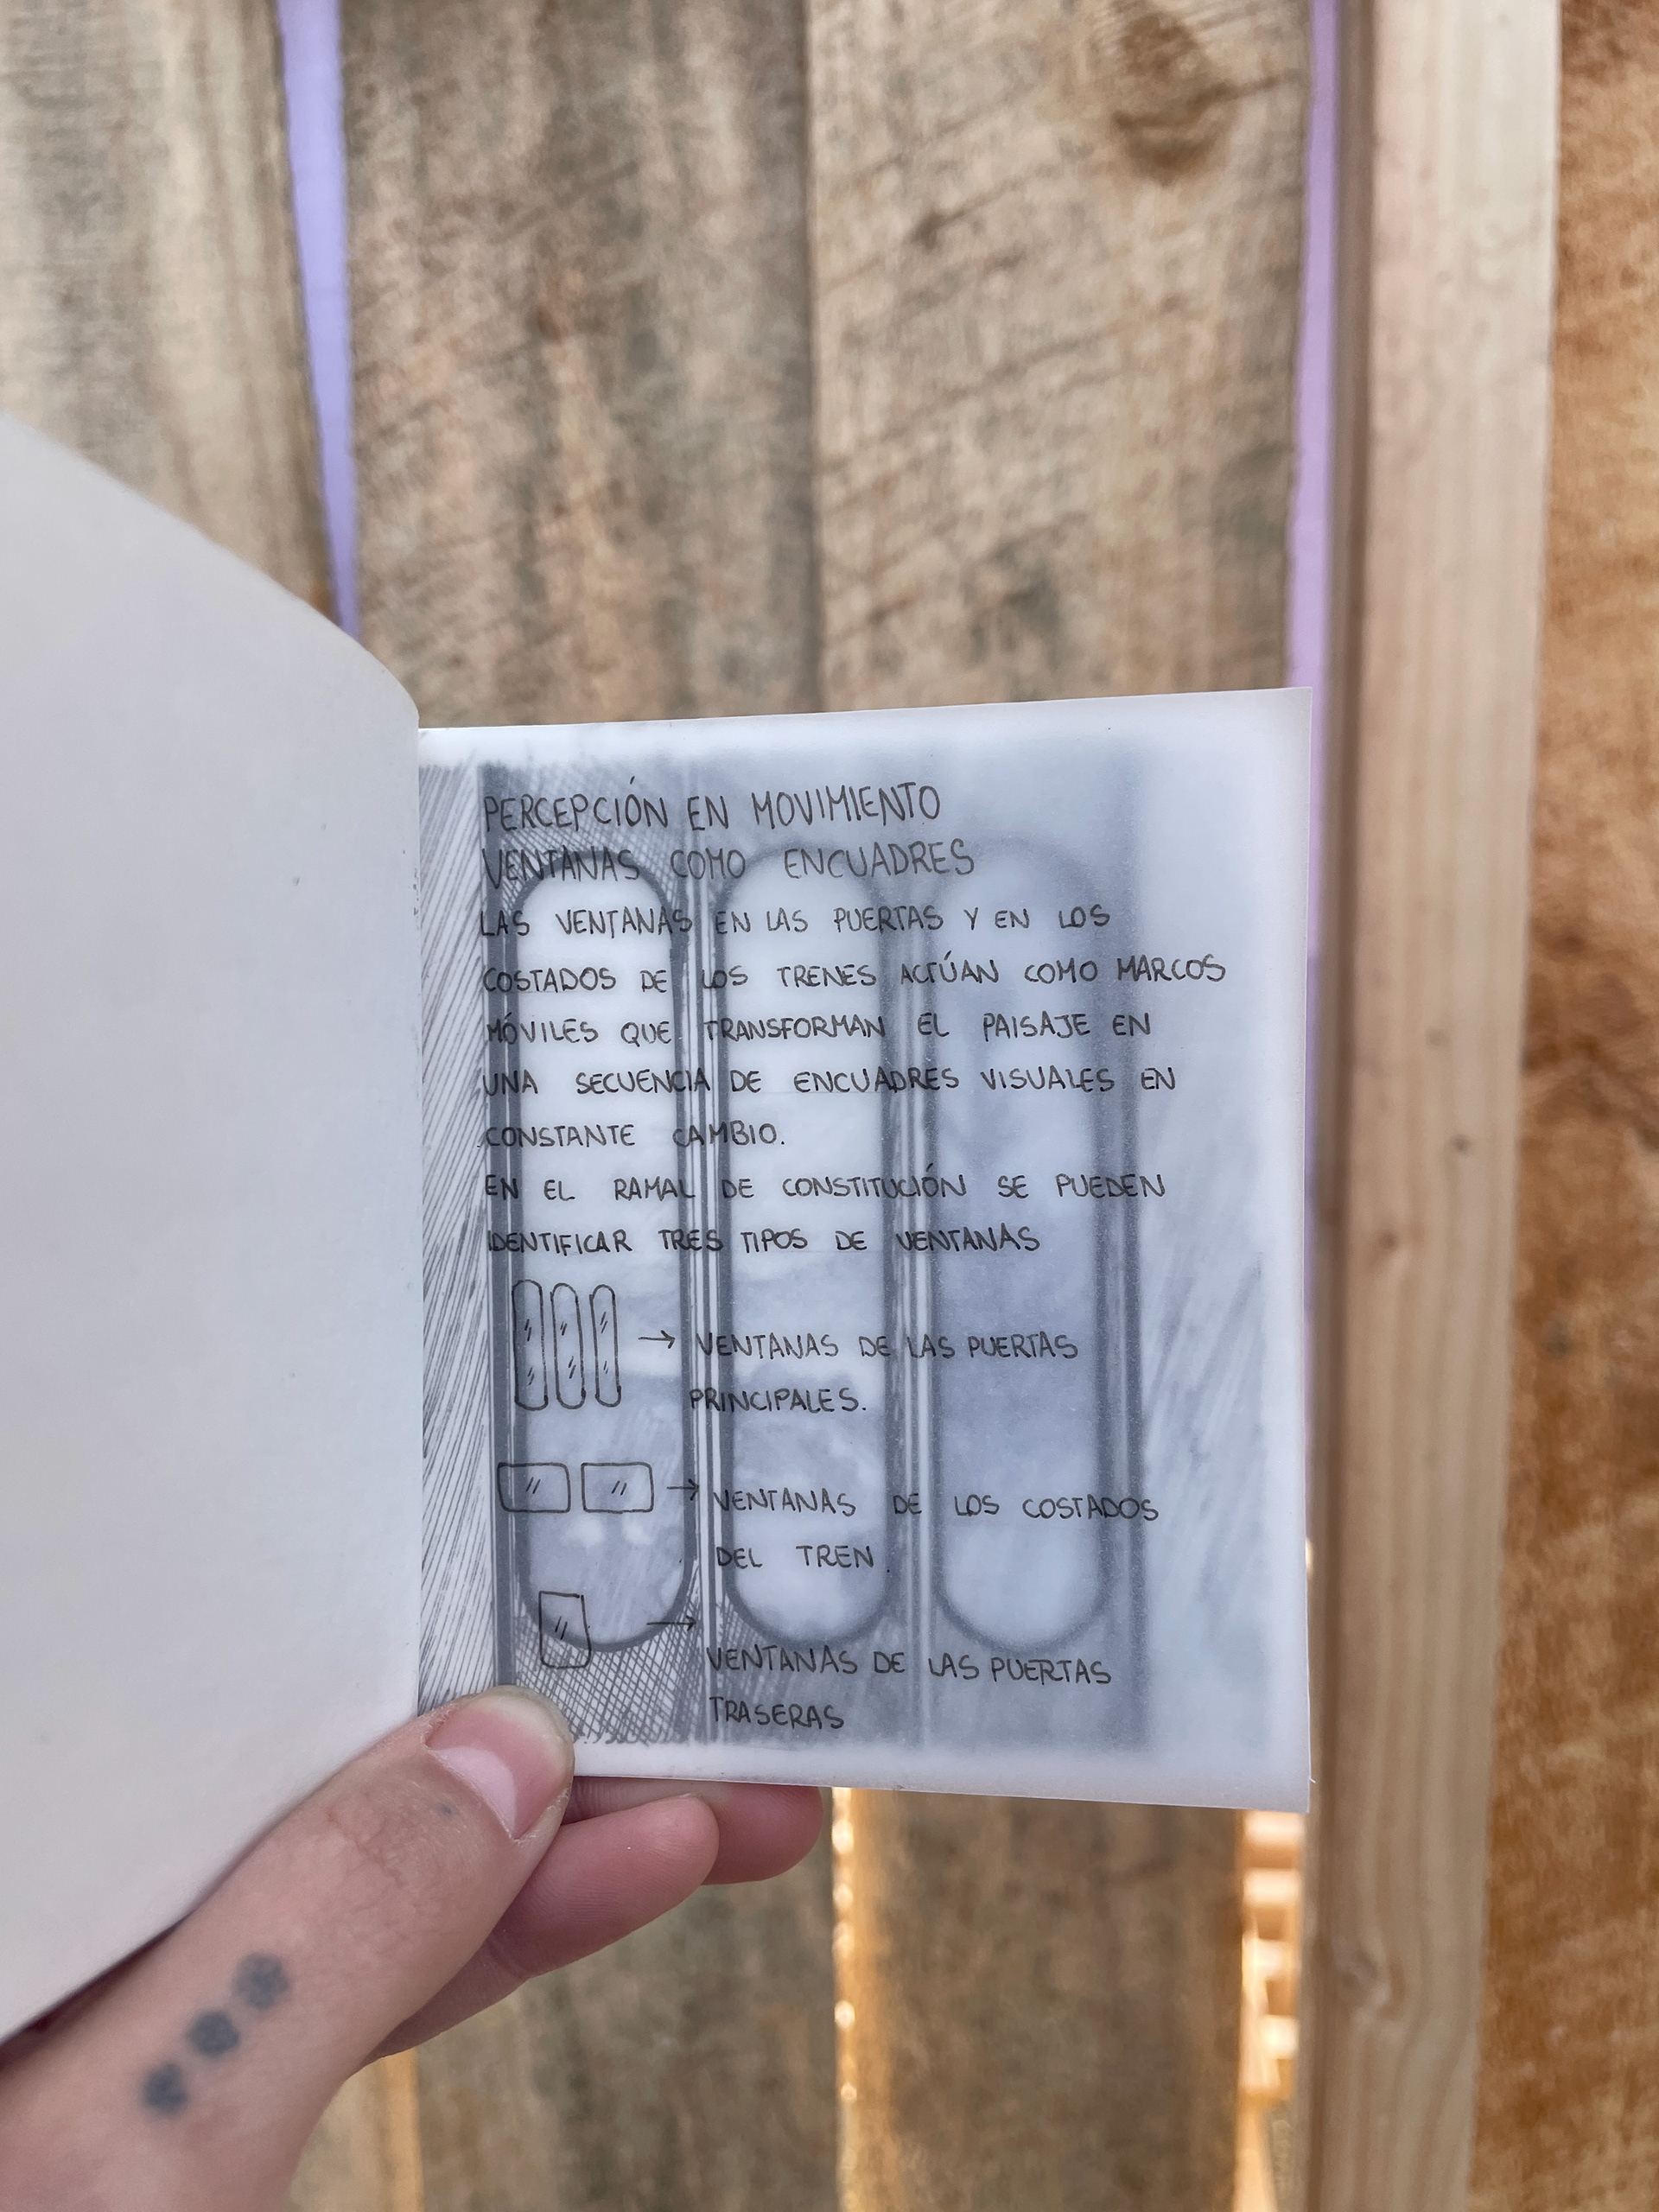 PERCEPCIÓN EN MOVIMIENTO
VENTANAS COMO ENCUADRES
LAS VENTANAS EN LAS PUERTAS Y EN LOS
COSTADOS DE LOS TRENES ACTÚAN COMO MARCOS
MÓVILES QUE TRANSFORMAN EL PAISAJE EN
UNA SECUENCIA DE ENCUADRES VISUALES EN
CONSTANTE CAMBIO.
EN EL RAMAL DE CONSTITUCIÓN SE PUEDEN
IDENTIFICAR TRES TIPOS DE VENTANAS
→ VENTANAS DE LAS PUERTAS
PRINCIPALES.
→ VENTANAS DE LOS COSTADOS
DEL TREN.
→ VENTANAS DE LAS PUERTAS
TRASERAS